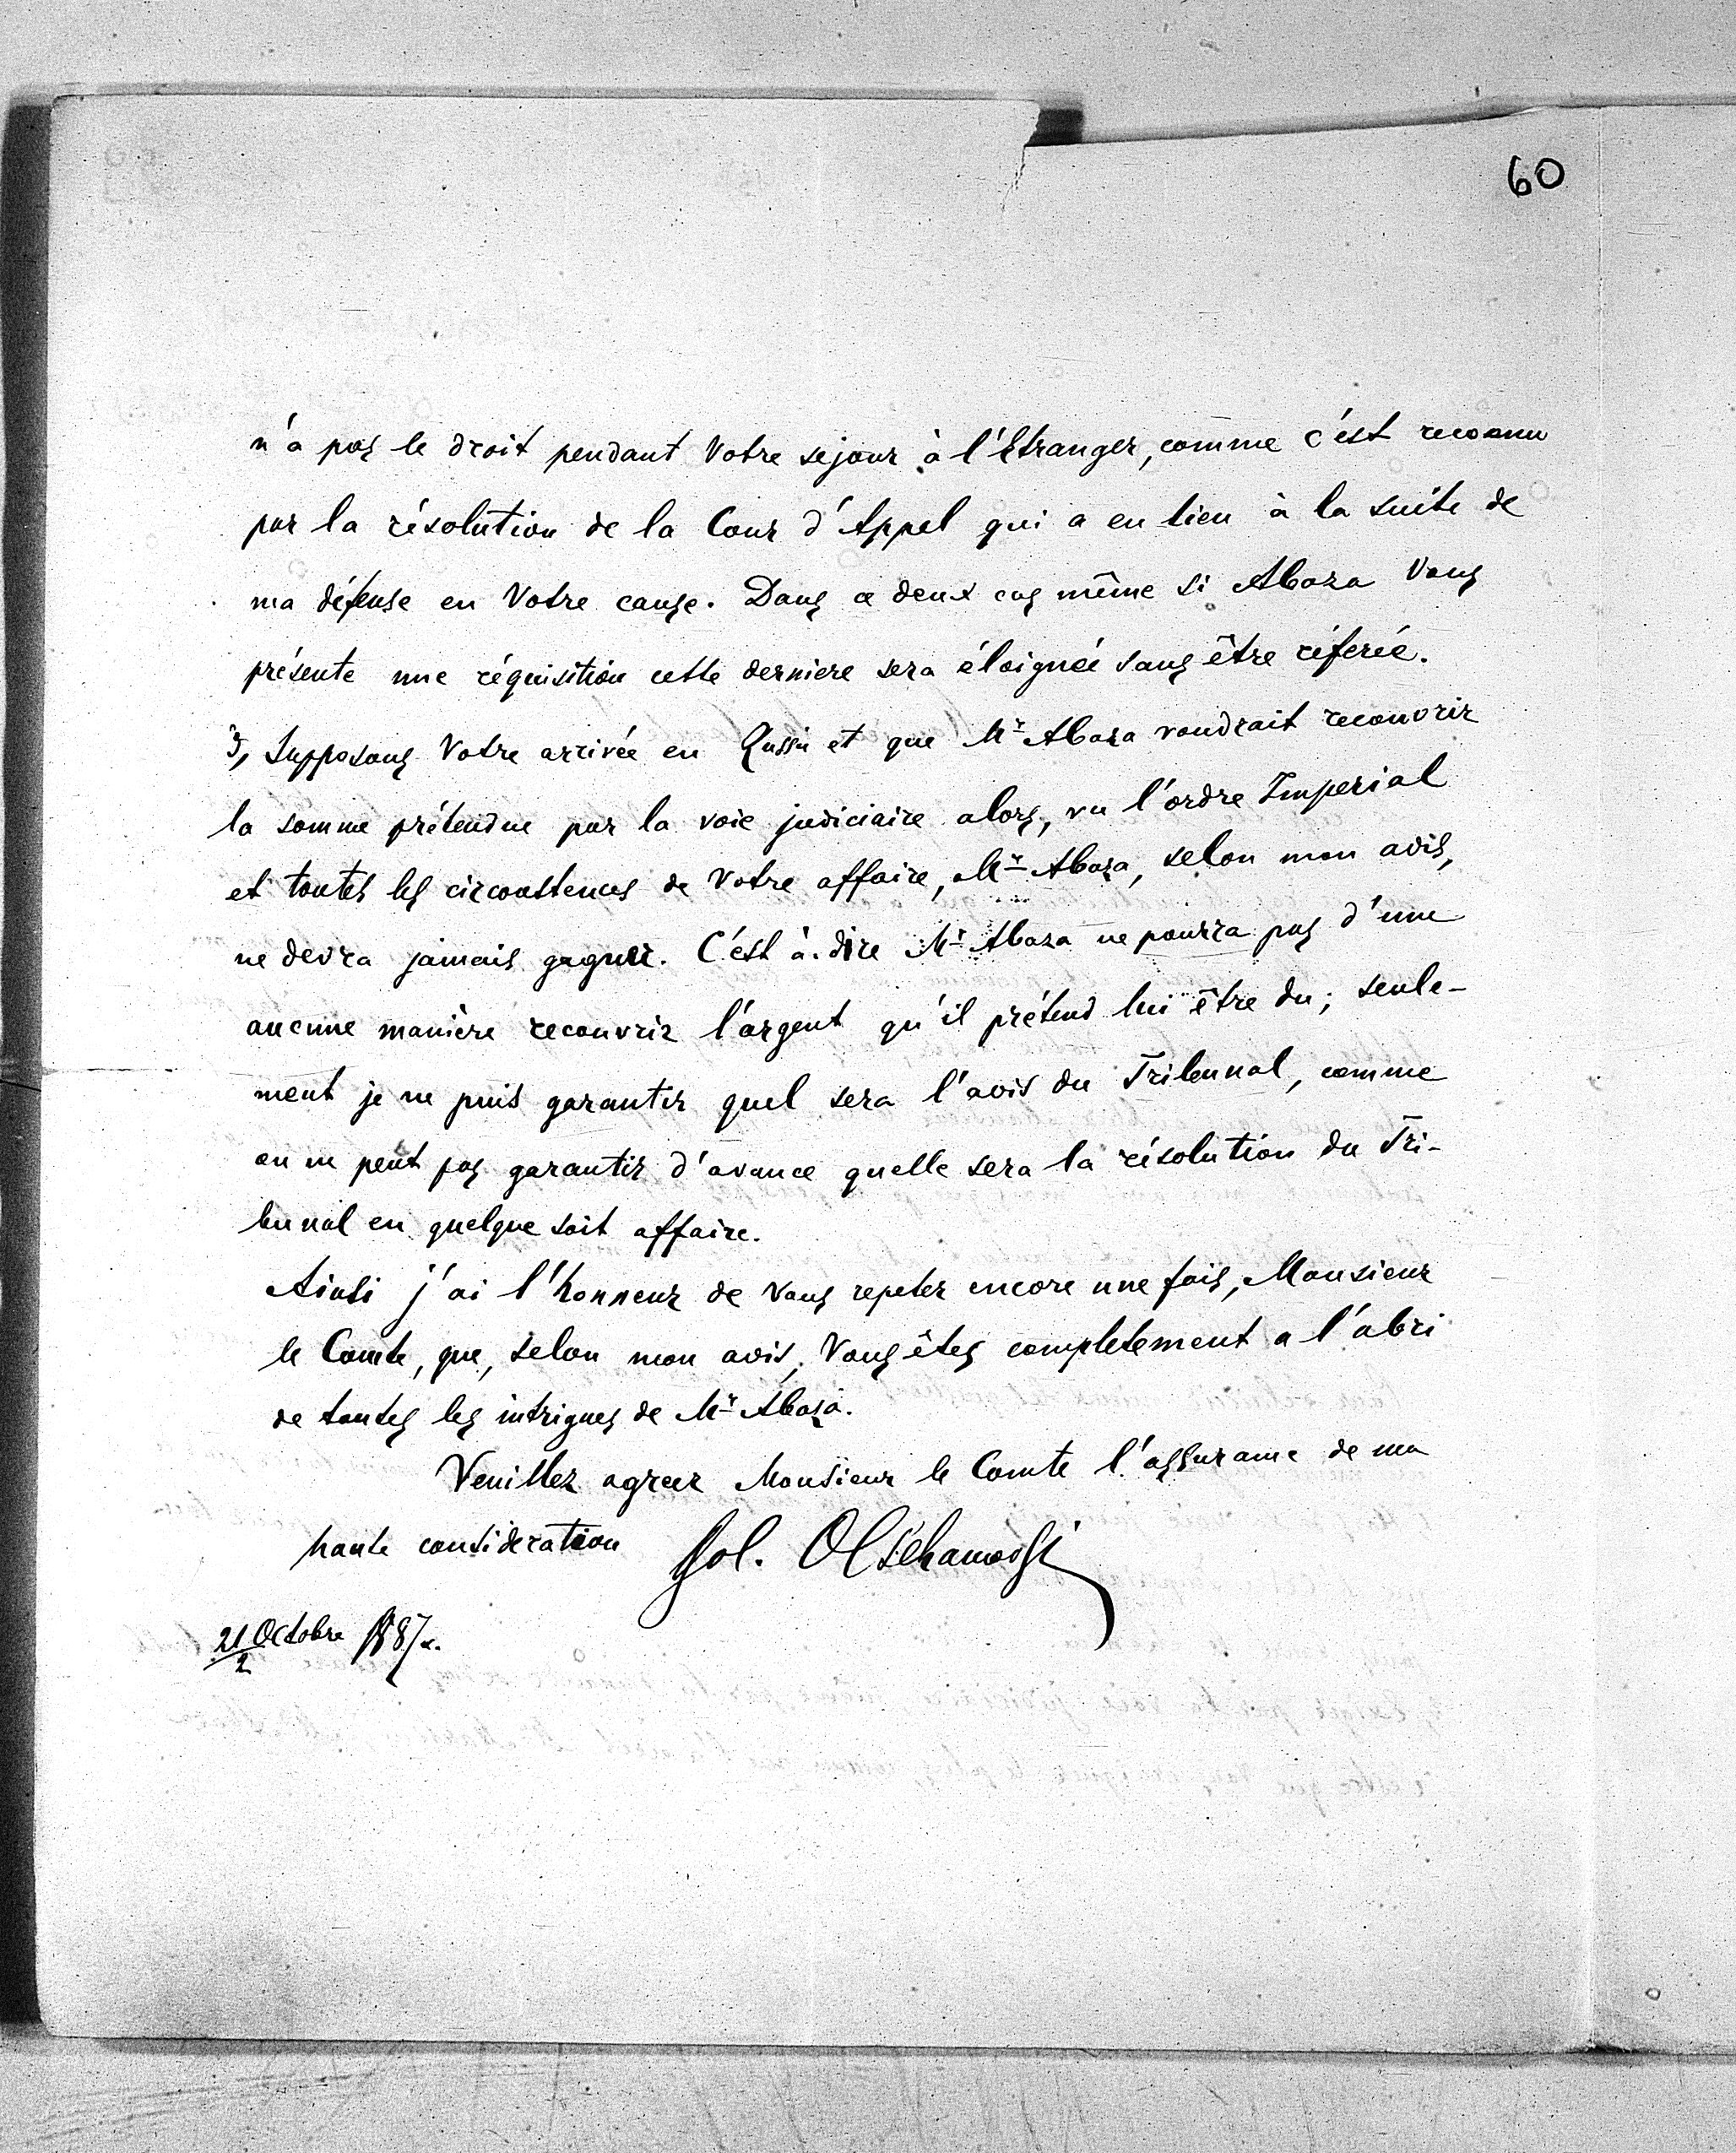 60
n'a pas le droit pendant Votre sejour à l'Etranger, comme c'est reconnu
par la résolution de la Cour d'Appel qui a eu lieu à la suite de
ma défense en Votre cause. Dans ce deux cas même si Abaza Vous
présente une réquisition cette derniere sera éloignée sans être réferée.
3, Supposons Votre arrivée en Russie et que Mr Abaza voudrait recouvrir
la somme prétendue par la voie judiciaire alors, vu l'ordre Imperial
et toutes les circonstences de Votre affaire, Mr Abaza, selon mon avis,
ne devra jamais gagner. C'est à dire Mr Abaza ne pourra pas d'une
aucune manière recouvrir l'argent qu'il prétend lui être du; seule-
ment je ne puis garantir quel sera l'avis du Tribunal, comme
on ne peut pas garantir d'avance quelle sera la résolution du Tri-
bunal en quelque soit affaire.
Ainsi j'ai l'honneur de Vous repeter encore une fois, Monsieur
le Comte, que, selon mon avis, Vous êtes completement a l'abri
de toutes les intrigues de Mr Abaza.
Veuillez agreer Monsieur le Comte l'assurance de ma
haute consideration
21/2 Octobre 1887